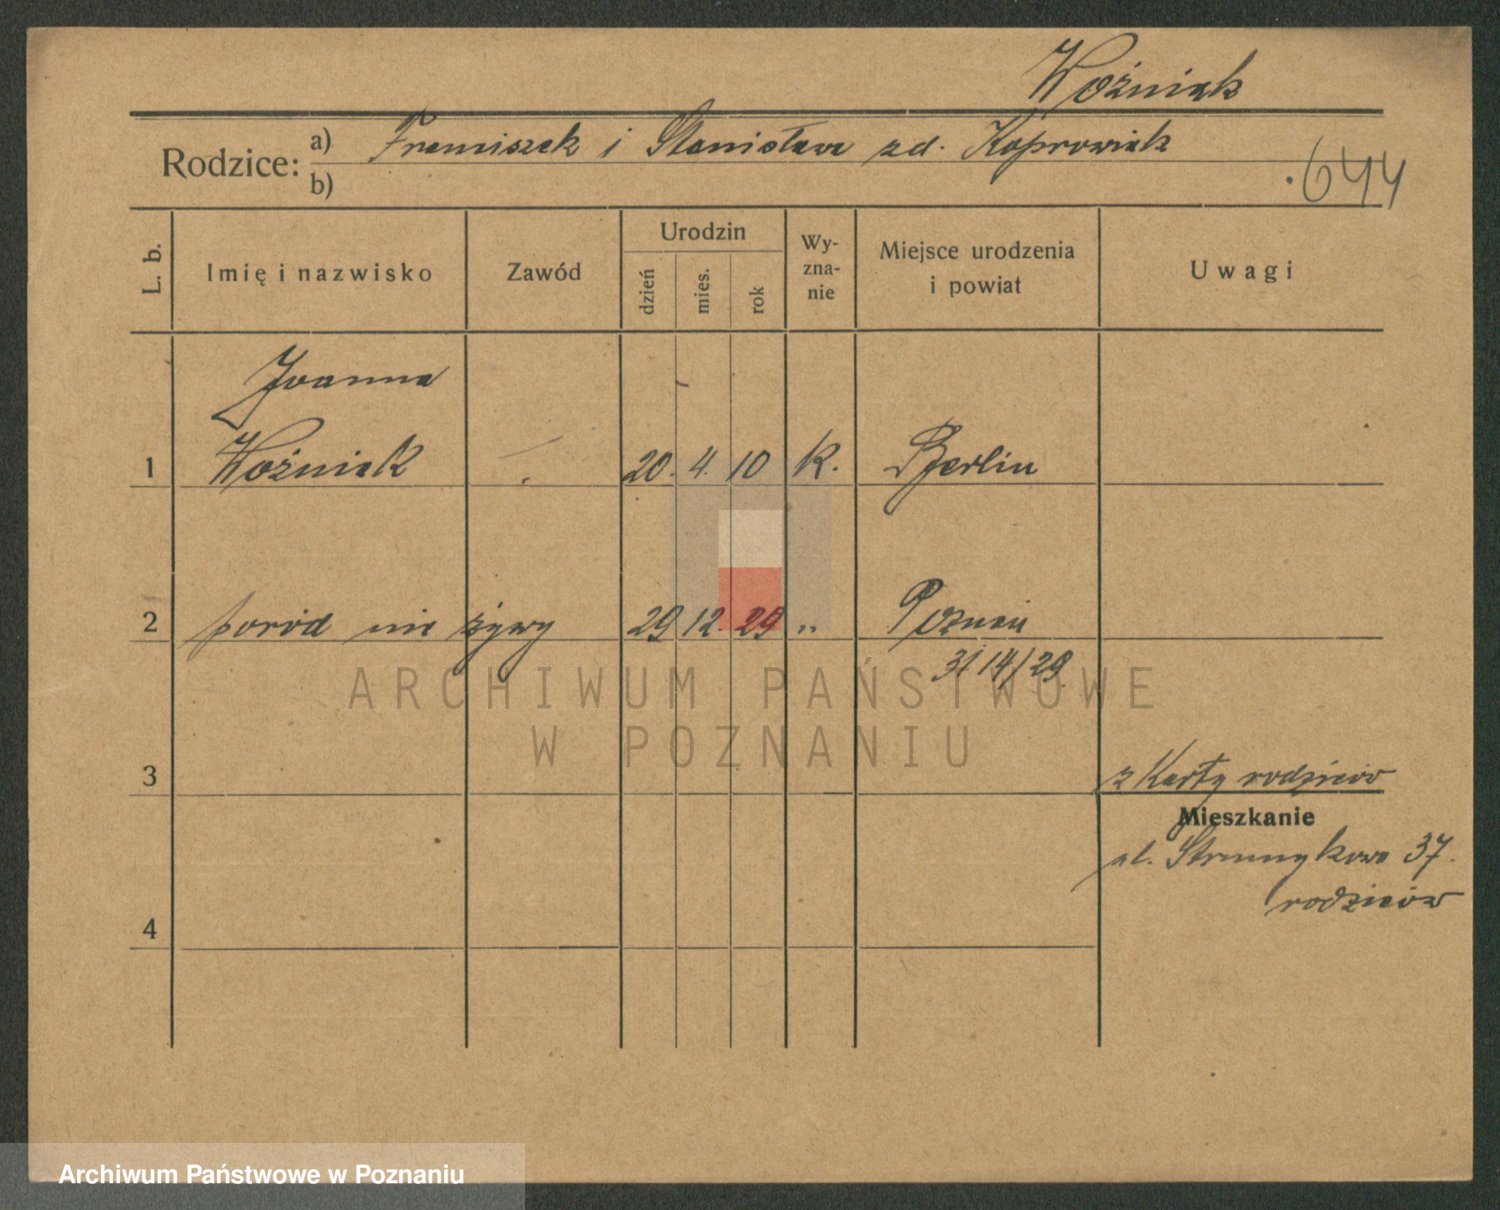 Woźniak
Rodzice: a) Franciszek i Stanisława zd. Koprowiak
b)
.644
L. b. Imię i nazwisko Zawód Urodzin dzień mies. rok Wy-zna-nie Miejsce urodzenia i powiat Uwagi
Joanna
1 Woźniak 20. 4. 10 K. Berlin
2 poród nie żywy 29 12. 29 „ Poznań
3114/29
ARCHIWUM PAŃSTWOWE
W POZNANIU
3 z Karty rodziców
Mieszkanie
ul. Strumykowa 37.
rodziców
4
Archiwum Państwowe w Poznaniu